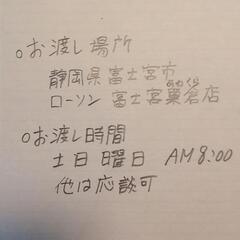 ○お渡し場所
静岡県富士宮市
ローソン 富士宮粟倉店
あわくら
○お渡し時間
土日曜日 AM8:00
他は応談可